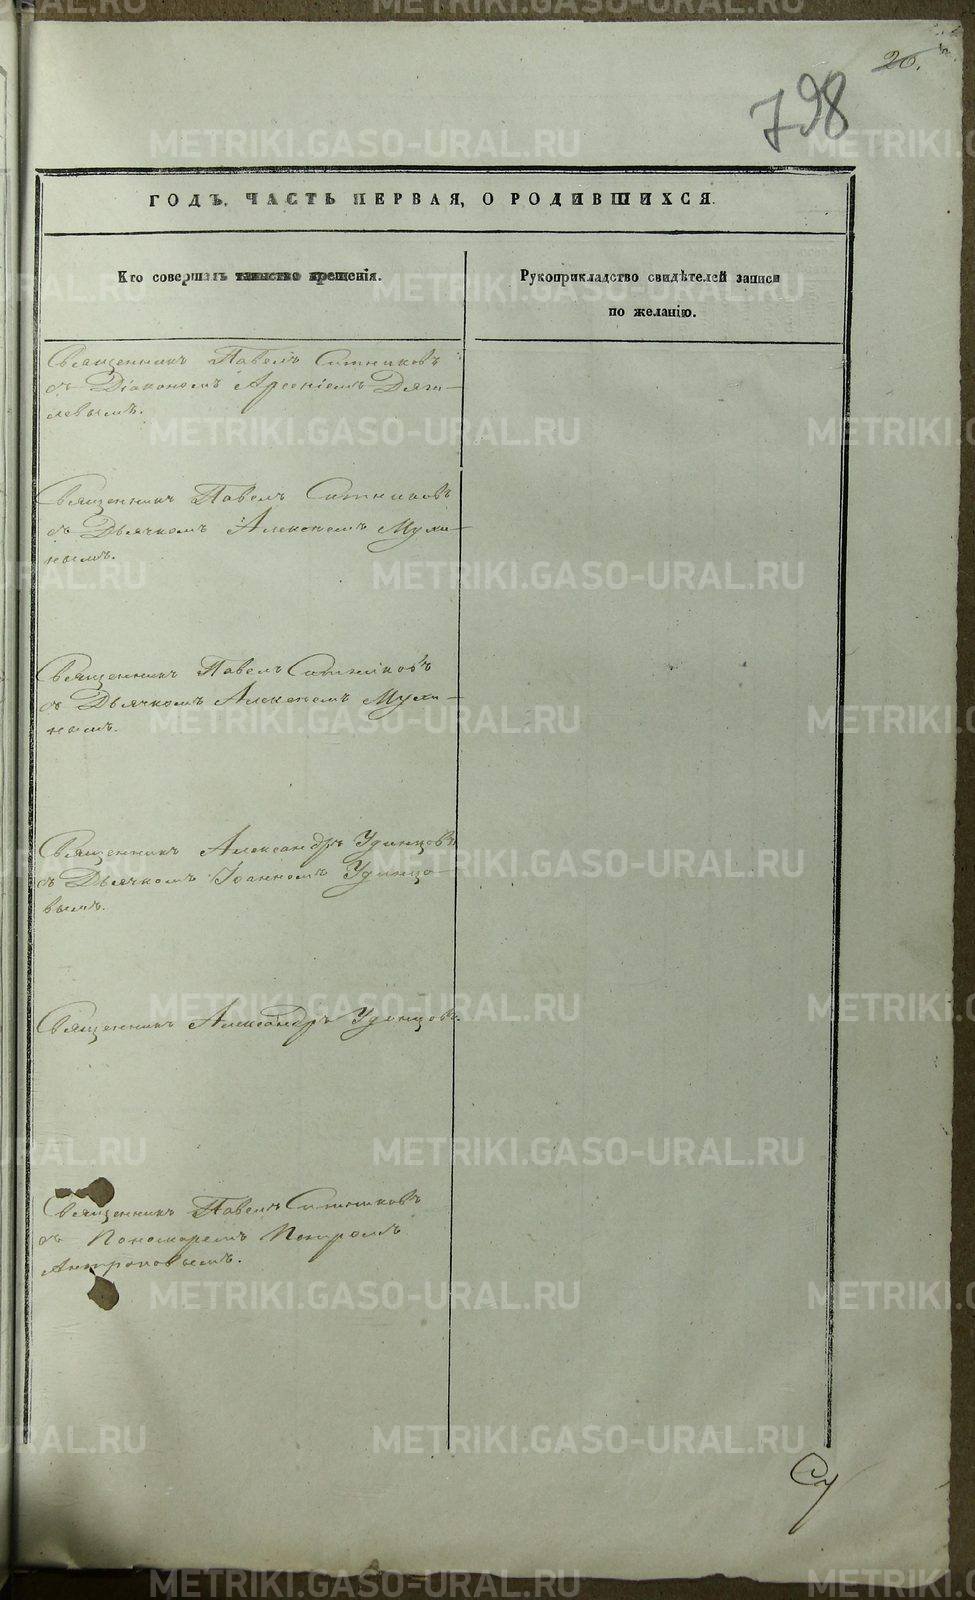 20.
798
ГОДЪ. ЧАСТЬ ПЕРВАЯ, О РОДИВШИХСЯ.
Кто совершалъ таинство крещенія.
Рукоприкладство свидѣтелей записи
по желанію.
Священникъ Павелъ Ситниковъ
съ Діакономъ Арсеніемъ Дяги-
левымъ.
Священникъ Павелъ Ситниковъ
съ Дьячкомъ Алексѣемъ Мухи-
нымъ.
Священникъ Павелъ Ситниковъ
съ Дьячкомъ Алексѣемъ Мухи-
нымъ.
Священникъ Александръ Удинцовъ
съ Дьячкомъ Іоанномъ Удинцо-
вымъ.
Священникъ Александръ Удинцовъ.
Священникъ Павелъ Ситниковъ
съ Пономаремъ Петромъ
Антроповымъ.
METRIKI.GASO-URAL.RU